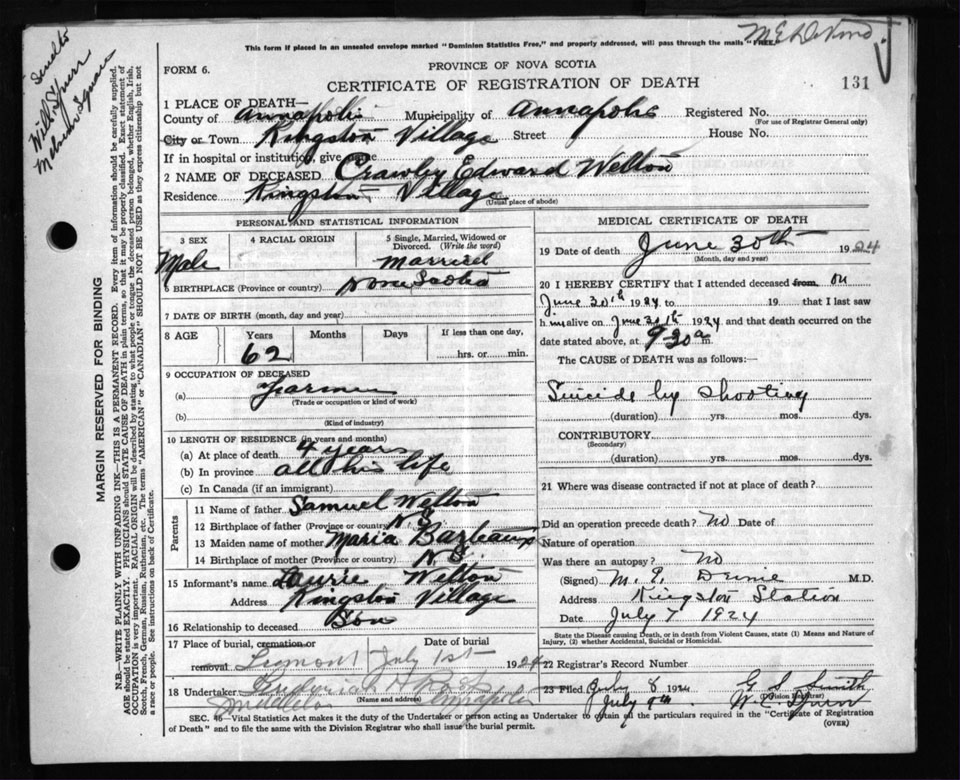 This form if placed in an unsealed envelope marked "Dominion Statistics Free," and properly addressed, will pass through the mails "FREE
PROVINCE OF NOVA SCOTIA
FORM 6.
CERTIFICATE OF REGISTRATION OF DEATH
131
1 PLACE OF DEATH—
County of Annapolis Municipality of Annapolis Registered No.
(For use of Registrar General only)
City or Town Kingston Village Street House No.
If in hospital or institution, give name
2 NAME OF DECEASED Crawley Edward Welton
Residence Kingston Village
(Usual place of abode)
PERSONAL AND STATISTICAL INFORMATION
3 SEX
Male
4 RACIAL ORIGIN
5 Single, Married, Widowed or
Divorced. (Write the word)
Married
6 BIRTHPLACE (Province or country) Nova Scotia
7 DATE OF BIRTH (month, day and year)
8 AGE Years Months Days If less than one day,
62 hrs. or min.
9 OCCUPATION OF DECEASED
(a) Farmer
(Trade or occupation or kind of work)
(b)
(Kind of industry)
10 LENGTH OF RESIDENCE (in years and months)
(a) At place of death 4 years
(b) In province all his life
(c) In Canada (if an immigrant)
Parents
11 Name of father Samuel Welton
12 Birthplace of father (Province or country) N.S.
13 Maiden name of mother Maria
14 Birthplace of mother (Province or country) N.S.
15 Informant's name Laurie Welton
Address Kingston Village
16 Relationship to deceased Son
17 Place of burial, cremation or Date of burial
removal July 1st 1924
18 Undertaker
(Name and address)
Middleton Annapolis
MEDICAL CERTIFICATE OF DEATH
19 Date of death June 30th 1924
(Month, day and year)
20 I HEREBY CERTIFY that I attended deceased from on
June 30th 1924 to 19 that I last saw
h im alive on June 1924 and that death occurred on the
date stated above, at 9 30 a m.
The CAUSE of DEATH was as follows:
Suicide by shooting
(duration) yrs. mos. dys.
CONTRIBUTORY
(Secondary)
(duration) yrs. mos. dys.
21 Where was disease contracted if not at place of death?
Did an operation precede death? No Date of
Nature of operation
Was there an autopsy? No
(Signed) M. E. M.D.
Address Kingston Station
Date July 7 1924
State the Disease causing Death, or in death from Violent Causes, state (1) Means and Nature of
Injury, (2) whether Accidental, Suicidal or Homicidal.
22 Registrar's Record Number
23 Filed July 8 1924 G. S. Smith
(Division Registrar)
July 9th W. E. Spurr
SEC. 46—Vital Statistics Act makes it the duty of the Undertaker or person acting as Undertaker to obtain all the particulars required in the "Certificate of Registration
of Death" and to file the same with the Division Registrar who shall issue the burial permit.
(OVER)
MARGIN RESERVED FOR BINDING
N.B.—WRITE PLAINLY WITH UNFADING INK—THIS IS A PERMANENT RECORD. Every item of information should be carefully supplied.
AGE should be stated EXACTLY. PHYSICIANS should STATE CAUSE OF DEATH in plain terms, so that it may be properly classified. Exact statement of
OCCUPATION is very important. RACIAL ORIGIN will be described by stating to what people or tongue the deceased person belonged, whether English, Irish,
Scotch, French, German, Russian, Ruthenian, etc. The terms "AMERICAN" or "CANADIAN" SHOULD NOT BE USED as they express citizenship but not
a race or people. See instructions on back of Certificate.
Will Spurr
Melvern Square